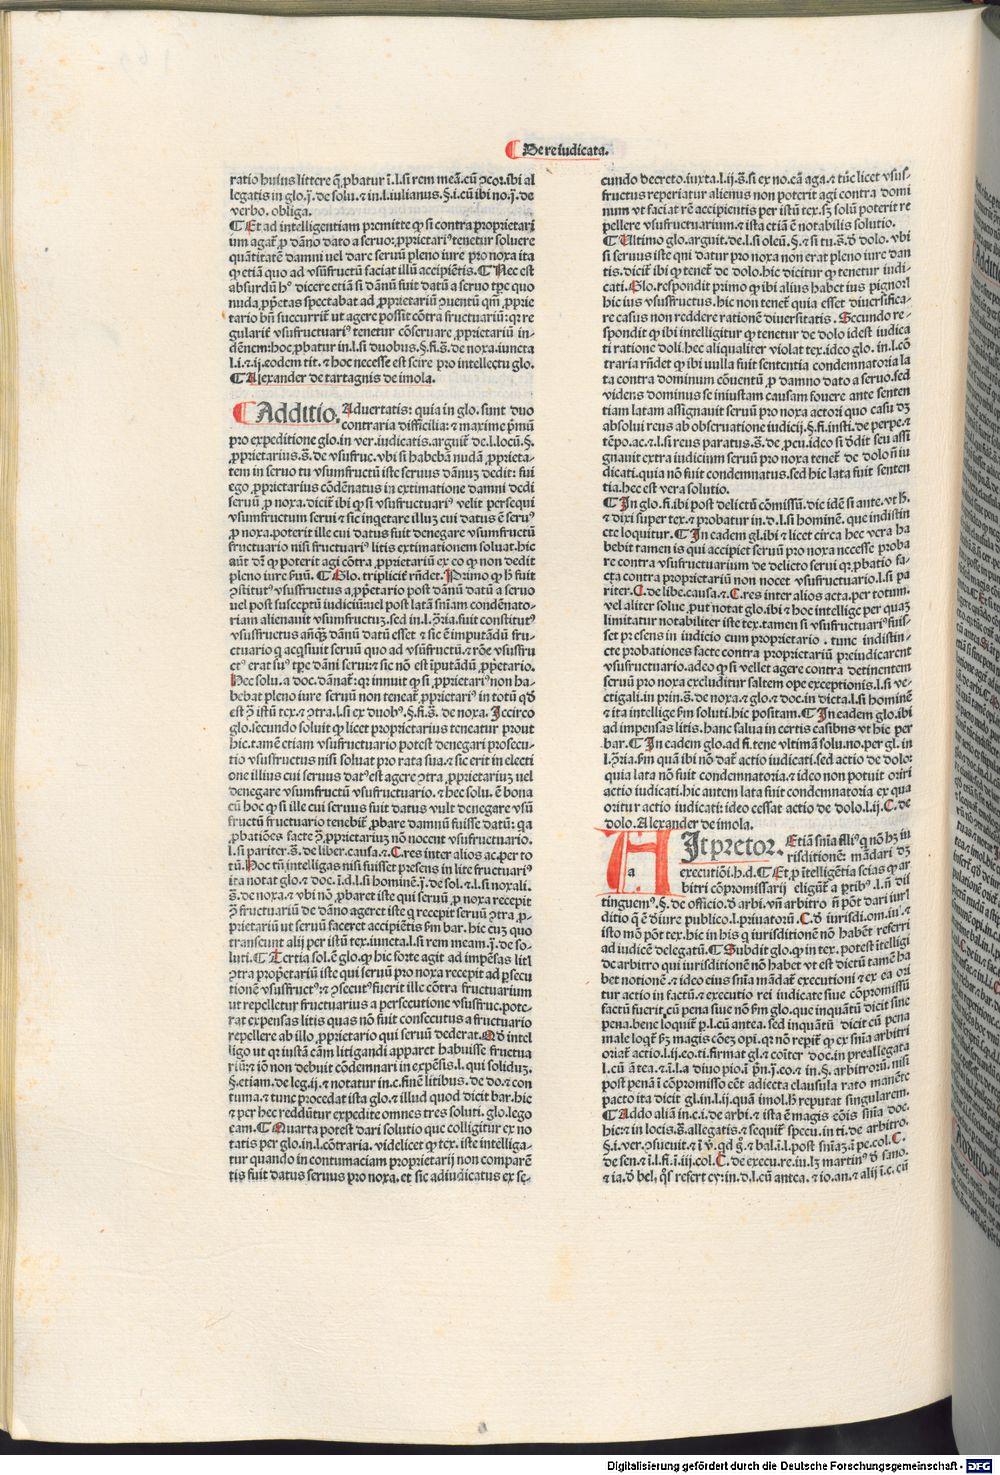 De re iudicata.
ratio huius littere q̄ ꝓbatur ī.l.si rem meā.cū ɔcor.ibi al
legatis in glo.j̄.de solu.⁊ in.l.iulianus.§.i.cū ibi no.j̄.de
verbo. obliga.
¶Et ad intelligentiam premitte ꝙ si contra proprietari
um agat̄ ꝓ dāno dato a seruo:ꝓprietari⁹ tenetur soluere
quātitatē damni uel dare seruū pleno iure pro noxa ita
ꝙ etiā quo ad vsufructū faciat illū accipiētis.¶Nec est
absurdū h⁰ dicere etiā si dānū fuit datū a seruo tꝑe quo
nuda ꝓprietas spectabat ad ꝓprietariū
tario bn̄ succurrit̄ ut agere possit cōtra fructuariū:qꝛ re
gularit̄ vsufructuari⁹ tenetur cōseruare ꝓprietariū in-
dēnem:hoc ꝓbatur in.l.si duobus.§.fi.s̄.de noxa.iuncta
l.i.⁊.ij.eodem tit.⁊ hoc necesse est scire pro intellectu glo.
¶Alexander de tartagnis de imola.
¶Additio. Aduertatis: quia in glo. sunt duo
contraria difficilia: ⁊ maxime p̄mū
pro expeditione glo.in ver.iudicatis.arguit̄ de.l.locū.§.
ꝓprietarius.s̄.de vsufruc.vbi si habebā nudā ꝓprieta-
tem in seruo tu vsumfructū iste seruus dānuz dedit: fui
ego ꝓprietarius cōdēnatus in extimatione damni dedi
seruū ꝓ noxa.dicit̄ ibi ꝙ si vsufructuari⁹ velit persequi
vsumfructum serui ⁊ sic inqetare illuz cui datus ē seru⁹
ꝓ noxa.poterit ille cui datus fuit denegare vsumfructū
fructuario nisi fructuari⁹ litis extimationem soluat.hic
aūt dr̄ ꝙ poterit agi cōtra ꝓprietariū ex eo ꝙ non dedit
pleno iure ẜuū. ¶Glo. tripliciē rn̄det. Primo ꝙ ħ fuit
ɔstitut⁹ vsusfructus a ꝓp̄etario post dānū datū a seruo
uel post susceptū iudiciū:uel post latā sn̄iam condēnato-
riam alienauit vsumfructuz.sed in.l.ɔ̄ria.fuit constitut⁹
vsusfructus añqꝫ dānū datū esset ⁊ sic ē imputādū fru-
ctuario q acqsiuit seruū quo ad vsūfructū.⁊ rōe vsusfru
ct⁹ erat su⁹ tꝑe dāni serui:⁊ sic nō est īputādū ꝓp̄etario.
Hec solu.a doc.dānat̄: qꝛ innuit ꝙ si ꝓprietari⁹ non ha-
bebat pleno iure seruū non teneat̄ ꝓprietari⁹ in totū qđ
est ɔ̄ istū tex.⁊ ɔtra.l.si ex duob⁹.§.fi.s̄. de noxa. Iccirco
glo.secundo soluit ꝙ licet proprietarius teneatur prout
hic.tamē etiam vsufructuario potest denegari prosecu-
tio vsusfructus nisi soluat pro rata sua.⁊ sic erit in electi
one illius cui seruus dat⁹ est agere ɔtra ꝓprietariuz uel
denegare vsumfructū vsufructuario. ⁊ hec solu. ē bona
cū hoc ꝙ si ille cui seruus fuit datus vult denegare vsū
fructū fructuario tenebit̄ ꝓbare damnū fuisse datū: qa
ꝓbatiōes facte ɔ̄ ꝓprietariuz nō nocent vsufructuario.
l.si pariter.s̄. de liber.causa.⁊.C.res inter alios ac.per to
tū.Hoc tn̄ intelligas nisi fuisset presens in lite fructuari⁹
ita notat glo.⁊ doc. ī.d.l.si hominē.j̄.de sol.⁊.l.si noxali.
s̄.de noxa.⁊ vbi nō ꝓbaret iste qui seruū ꝓ noxa recepit
ɔ̄ fructuariū de dāno ageret iste q recepit seruū ɔtra ꝓ-
prietariū ut seruū faceret accipiētis ẜm bar. hic cuz quo
transeunt alij per istū tex.iuncta.l.si rem meam.j̄. de so-
luti.¶Tertia sol.ē glo.ꝙ hic forte agit ad impēsas liti
ɔtra propetariū iste qui seruū pro noxa recepit ad ꝑsecu
tionē vsusfruct⁹:⁊ ɔsecut⁹ fuerit ille cōtra fructuarium
ut repelletur fructuarius a persecutione vsusfruc.pote-
rat expensas litis quas nō fuit consecutus a fructuario
repellere ab illo ꝓprietario qui seruū dederat. Qđ intel
ligo ut qꝛ iustā cām litigandi apparet habuisse fructua
riū:⁊ iō non debuit cōdemnari in expēsis.l. qui soliduz.
§.etiam.de leg.ij.⁊ notatur in.c.finē litibus. de do.⁊ con
tuma.⁊ tunc procedat ista glo.⁊ illud quod dicit bar.hic
⁊ per hec reddūtur expedite omnes tres soluti. glo.lego
eam.¶Quarta potest dari solutio que colligitur ex no
tatis per glo.in.l.cōtraria. videlicet ꝙ tex. iste intelliga-
tur quando in contumaciam proprietarij non comparē
tis fuit datus seruus pro noxa.et sic adiudicatus ex se-
cundo decreto.iuxta.l.ij.s̄.si ex no.cā aga.⁊ tūc licet vsus-
fructus reperiatur alienus non poterit agi contra domi
num vt faciat rē accipientis per istū tex.sꝫ solū poterit re
pellere vsufructuarium.⁊ ista etiā ē notabilis solutio.
¶Ultimo glo.arguit.de.l.si oleū.§.⁊ si tu.s̄.đ dolo. vbi
si seruus iste qui datur pro noxa non erat pleno iure dan
tis.dicit̄ ibi ꝙ tenet̄ de dolo.hic dicitur ꝙ tenetur iudi-
cati. Glo.respondit primo ꝙ ibi alius habet ius pignori
hic ius vsusfructus.hic non tenet̄ quia esset diuersifica-
re casus non reddere rationē diuersitatis. Secundo re-
spondit ꝙ ibi intelligitur ꝙ tenetur de dolo idest iudica
ti ratione doli.hec aliqualiter violat tex.ideo glo. in.l.cō
traria rn̄det ꝙ ibi nulla fuit sententia condemnatoria la
ta contra dominum cōuentū ꝓ damno dato a seruo.sed
videns dominus se iniustam causam fouere ante senten
tiam latam assignauit seruū pro noxa actori quo casu dꝫ
absolui reus ab obseruatione iudicij.§.fi.insti.de perpe.⁊
tēpo.ac.⁊.l.si reus paratus.s̄. de ꝓcu.ideo si ɔ̄dit seu assi
gnauit extra iudicium seruū pro noxa tenet̄ de dolo n̄ iu
dicati.quia nō fuit condemnatus.sed hic lata fuit senten
tia.hec est vera solutio.
¶In glo.fi.ibi post delictū cōmissū.dic idē si ante. vt ħ.
⁊ dixi super tex.⁊ probatur in.d.l.si hominē. que indistin
cte loquitur.¶In eadem gl.ibi ⁊ licet circa hec vera ha
bebit tamen is qui accipiet seruū pro noxa necesse proba
re contra vsufructuarium de delicto serui qꝛ ꝓbatio fa-
cta contra proprietariū non nocet vsufructuario.l.si pa
riter.C.de libe.causa.⁊.C.res inter alios acta.per totum.
vel aliter solue ꝓut notat glo.ibi ⁊ hoc intellige per quaz
limitatur notabiliter iste tex.tamen si vsufructuari⁹ fuis-
set presens in iudicio cum proprietario. tunc indistin-
cte probationes facte contra proprietariū preiudicarent
vsufructuario.adeo ꝙ si vellet agere contra detinentem
seruū pro noxa excluditur saltem ope exceptionis.l.si ve-
ctigali.in prin.s̄.de noxa.⁊ glo.⁊ doc.in dicta.l.si hominē
⁊ ita intellige ẜm soluti.hic positam.¶In eadem glo.ibi
ad impensas litis.hanc salua in certis casibus vt hic per
bar.¶In eadem glo.ad fi.tene vltimā solu.no.per gl.in
l.ɔ̄ria.ẜm quā ibi nō dat̄ actio iudicati.sed actio de dolo:
quia lata nō fuit condemnatoria.⁊ ideo non potuit oriri
actio iudicati.hic autem lata fuit condemnatoria ex qua
oritur actio iudicati: ideo cessat actio de dolo.l.ij.C.de
dolo.Alexander de imola.
AIt pretor. Etiā sn̄ia illi⁹ q nō hꝫ iu
risditionē: mādari dꝫ
a
executiōi.h.d.¶Et ꝓ ītelligētia scias ꝙ ar
bitri cōpromissarij eligūt̄ a ptib⁹.l.n̄ di
tinguem⁹.§.de officio.đ arbi.vn̄ arbitro n̄ pōt dari iuri
ditio q ē đ iure publico.l.priuatorū.C.đ iurisdi.om.iu.⁊
isto mō pōt tex.hic in his q iurisditionē nō habēt referri
ad iudicē delegatū.¶Subdit glo.ꝙ in tex. potest ītelligi
de arbitro qui iurisditionē nō habet vt est dictū tamē ha
bet notionē.⁊ ideo eius sn̄ia mādat̄ executioni ⁊ ex ea ori
tur actio in factū.⁊ executio rei iudicate siue cōpromissū
factū fuerit cū pena siue nō ẜm glo.que inquātū dicit sine
pena.bene loquit̄ ꝑ.l.cū antea. sed inquātū dicit cū pena
male loqt̄ ẜꝫ magis cōeꝫ opi.qꝛ nō reꝑit̄ ꝙ ex sn̄ia arbitri
oriat̄ actio.l.ij.eo.ti.firmat gl.⁊ cōiter doc.in preallegata
l.cū ātea.⁊ ī.l.a diuo pio.ī pn̄.j̄.eo.⁊ in.§. arbitrorū. nisi
post penā ī cōpromisso eēt adiecta clausula rato manēte
pacto ita dicit gl.in.l.ij.quā imol.ħ reputat singularem.
¶Addo aliā in.c.i.de arbi.⁊ ista ē magis cōis sn̄ia doc.
hic:⁊ in locis.s̄.allegatis.⁊ sequit̄ specu.in ti.de arbitro.
§.i.ver.ɔsueuit.⁊ ī ꝟ. qđ ḡ.⁊ bal.ī.l.post sn̄iaz.ī pe.col.C.
de sen.⁊ ī.l.fi.ī.iij.col.C.de execu.re.iu.lꝫ martin⁹ đ fano.
⁊ ia.đ bel. q̄s refert cy:in.đ.l.cū antea.⁊ io.an.⁊ alij ī.c.cū
Digitalisierung gefördert durch die Deutsche Forschungsgemeinschaft - DFG